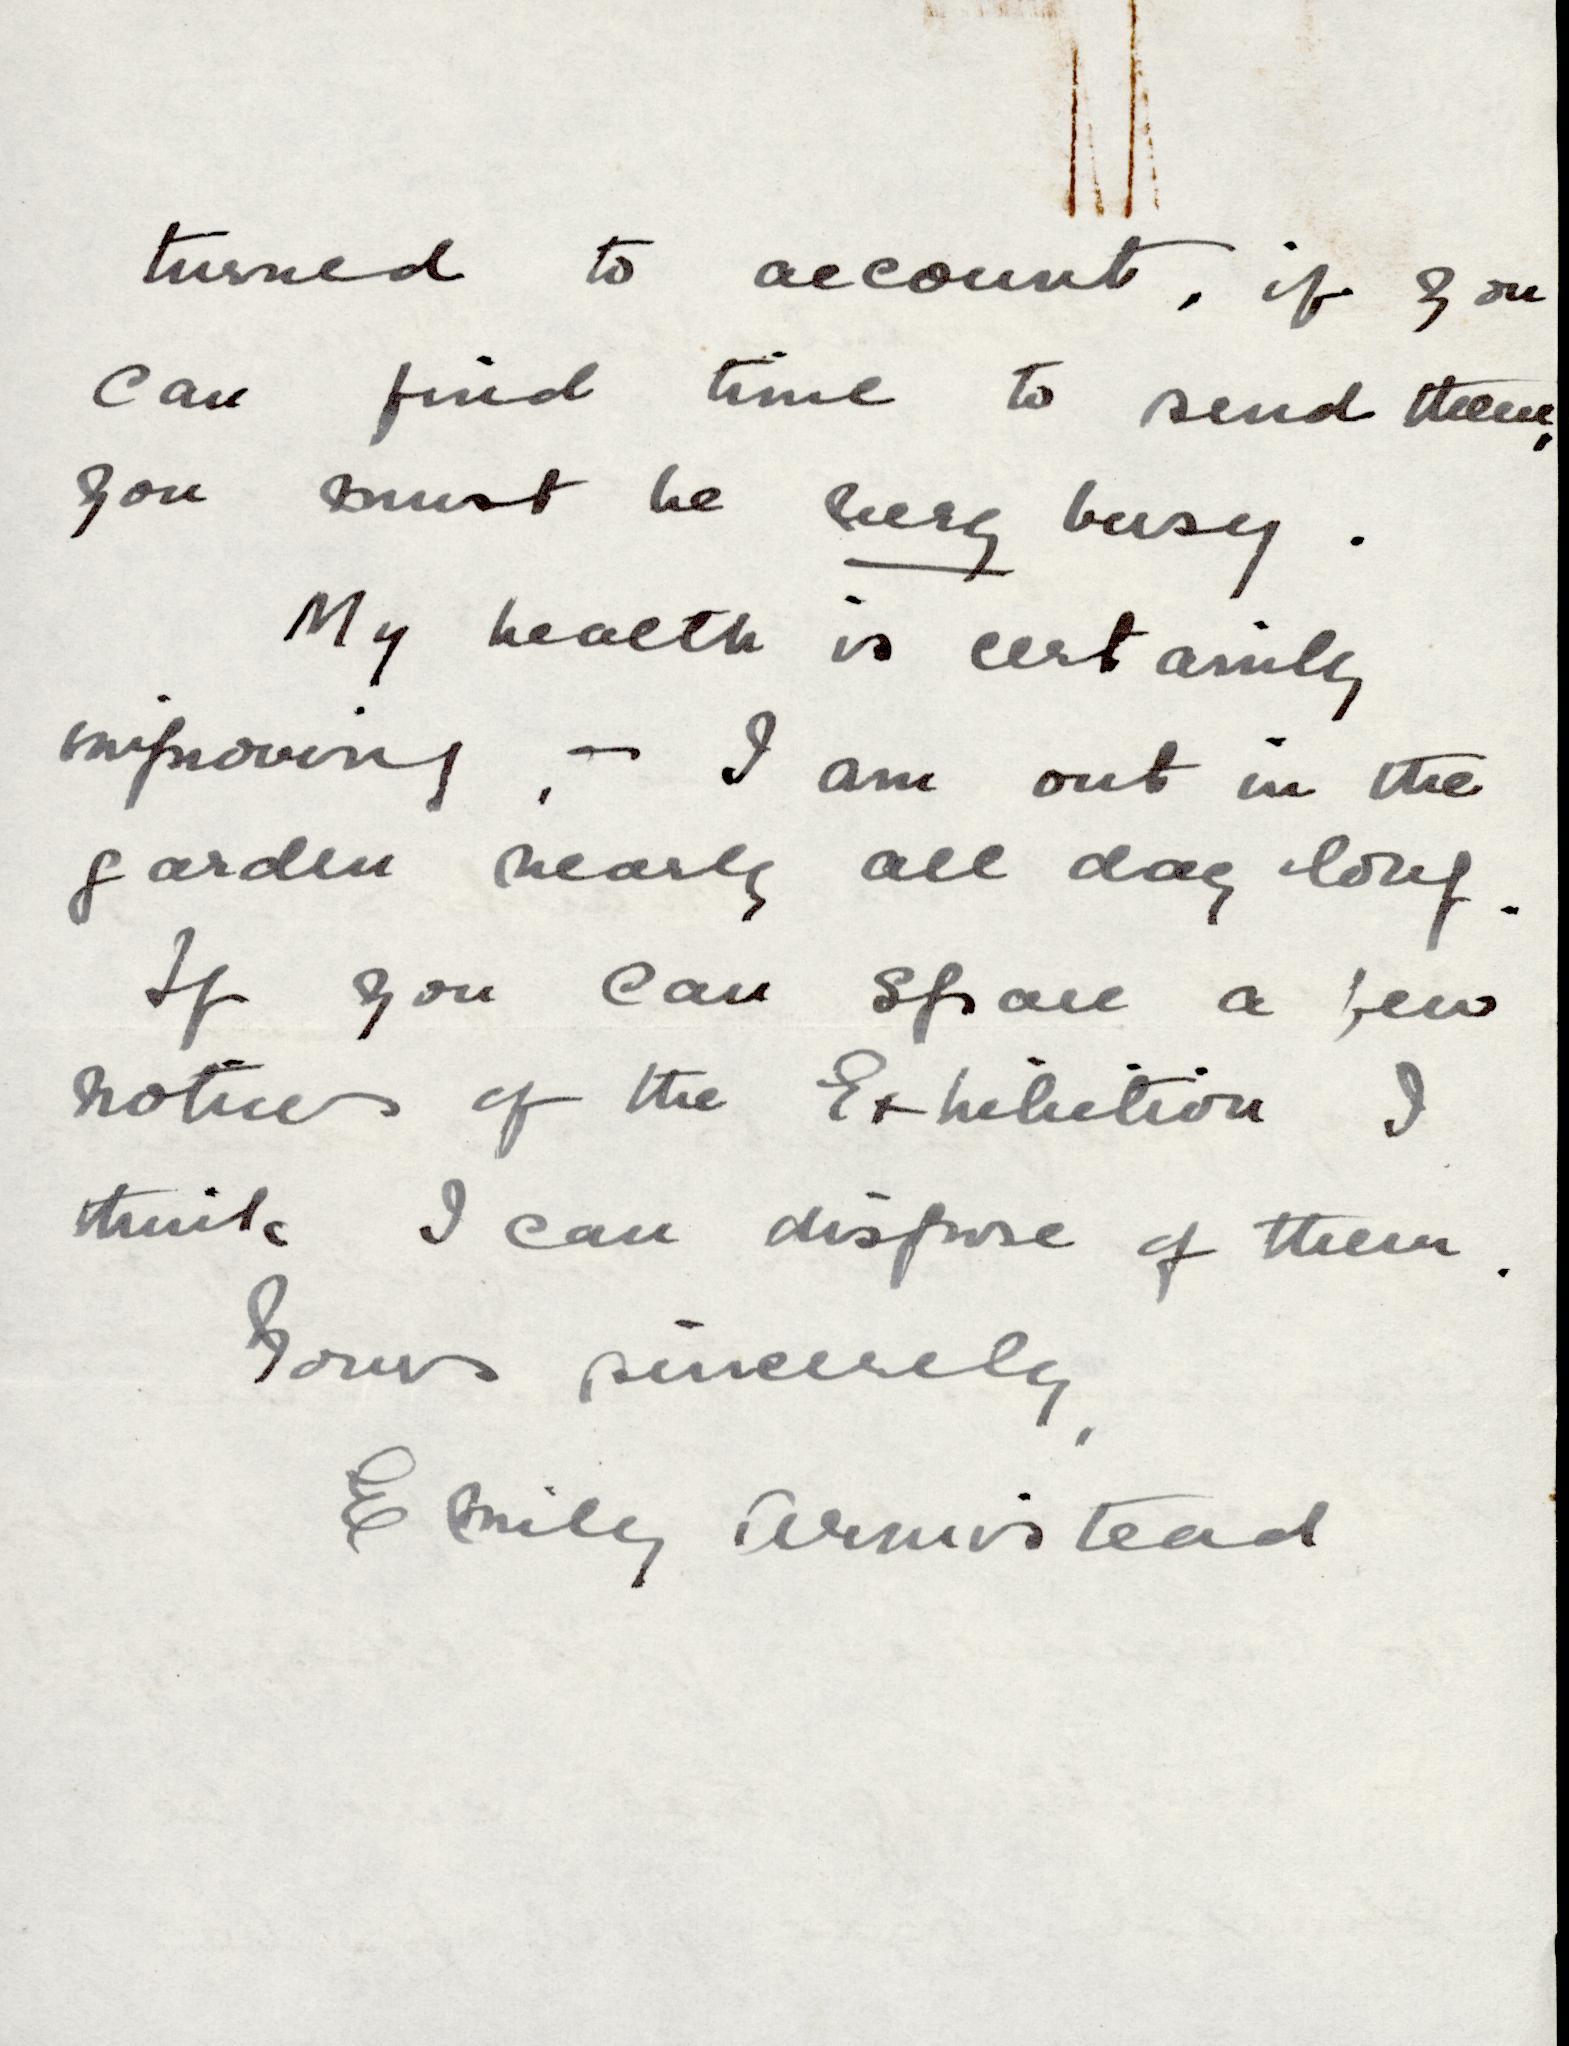 turned to account, if you
can find time to send them,
you must be very busy.
My health is certainly
improving, - I am out in the
garden nearly all day long.
If you can spare a few
notices of the Exhibition I
think I can dispose of them.
Yours sincerely,
Emily Armistead